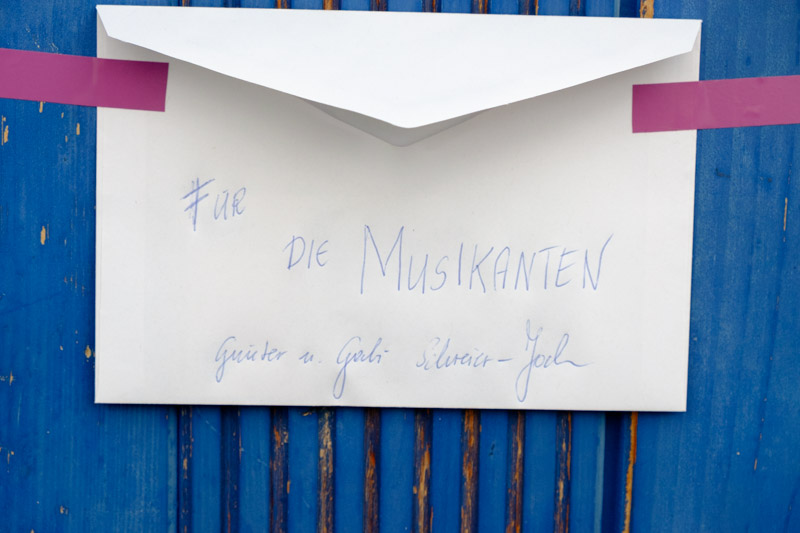 FÜR
DIE MUSIKANTEN
Günter u. Gabi Schreier-Joch